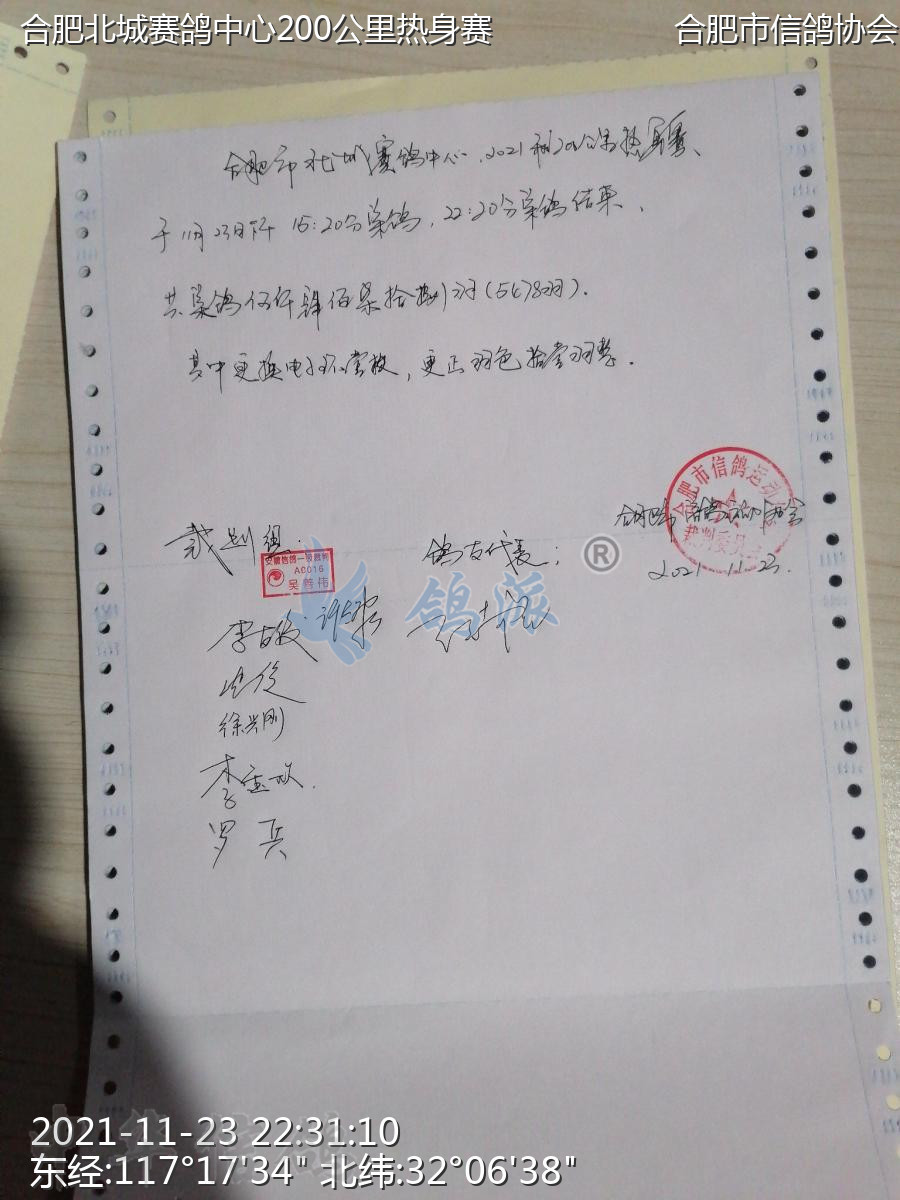 合肥北城赛鸽中心200公里热身赛
合肥市信鸽协会
合肥市北城赛鸽中心.2021秋200公里热身赛、
于11月23日下午15:20分集鸽，22:20分集鸽结束、
共集鸽伍仟肆佰柒拾捌羽(5478羽).
其中更换电子环壹枚，更正羽色拾壹羽整.
合肥市信鸽运动
裁判委员
裁判组:
安徽信鸽一级裁判
AC016
吴善伟
鸽友代表:
2021.11.23.
®
鸽派
李
徐兴刚
李
罗兵
2021-11-23 22:31:10
东经:117°17'34" 北纬:32°06'38"